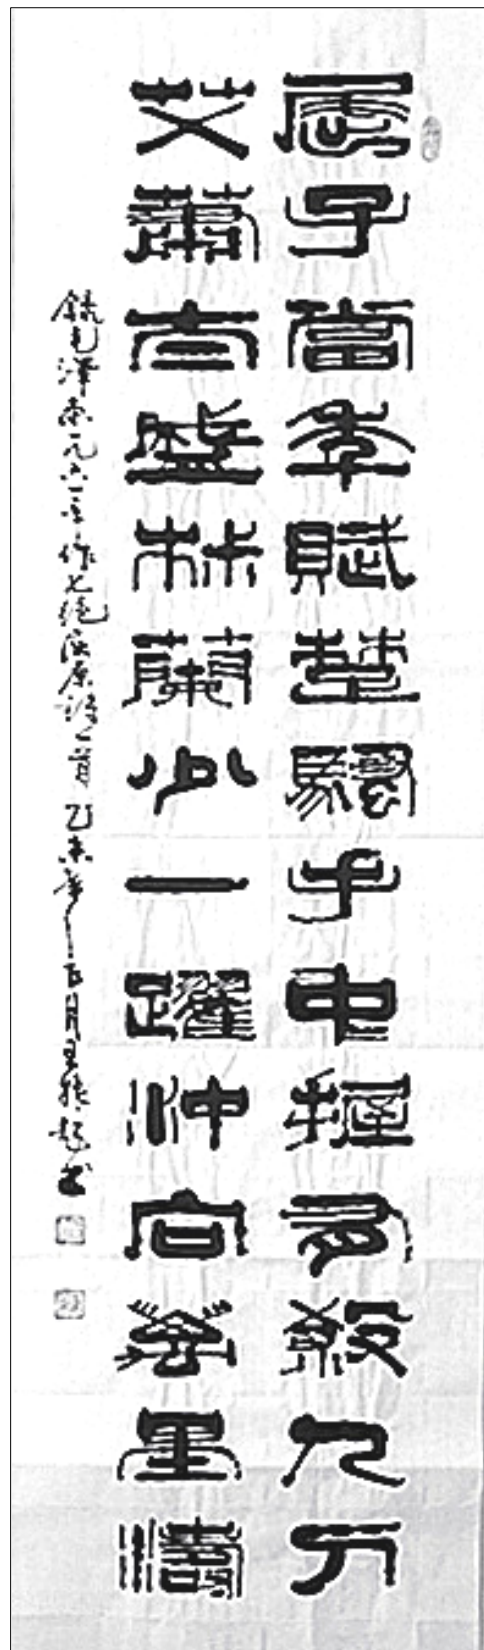 屈子當年賦楚騷手中握有殺人刀
艾蕭太盛椒蘭少一躍冲向萬里濤
錄毛澤东一九六一年作七绝屈原诗一首 乙未年五月王振起书